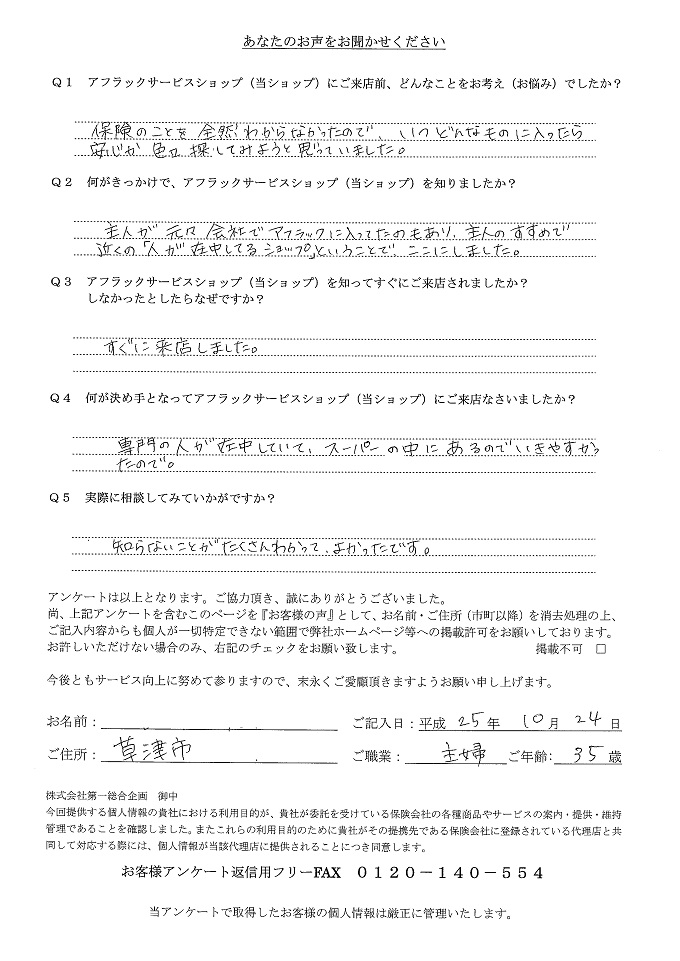 あなたのお声をお聞かせください
Q1 アフラックサービスショップ（当ショップ）にご来店前、どんなことをお考え（お悩み）でしたか？
保険のことを全然わからなかったので、いつどんなものに入ったら
安心か色々探してみようと思っていました。
Q2 何がきっかけで、アフラックサービスショップ（当ショップ）を知りましたか？
主人が元々会社でアフラックに入ってたのもあり、主人のすすめで
近くの「人が在中してるショップ」ということで、ここにしました。
Q3 アフラックサービスショップ（当ショップ）を知ってすぐにご来店されましたか？
しなかったとしたらなぜですか？
すぐに来店しました。
Q4 何が決め手となってアフラックサービスショップ（当ショップ）にご来店なさいましたか？
専門の人が在中していて、スーパーの中にあるのでいきやすかっ
たので。
Q5 実際に相談してみていかがですか？
知らないことがたくさんわかって、よかったです。
アンケートは以上となります。ご協力頂き、誠にありがとうございました。
尚、上記アンケートを含むこのページを『お客様の声』として、お名前・ご住所（市町以降）を消去処理の上、
ご記入内容からも個人が一切特定できない範囲で弊社ホームページ等への掲載許可をお願いしております。
お許しいただけない場合のみ、右記のチェックをお願い致します。 掲載不可 □
今後ともサービス向上に努めて参りますので、末永くご愛顧頂きますようお願い申し上げます。
お名前： ご記入日：平成 25年 10月 24日
ご住所： 草津市 ご職業： 主婦 ご年齢： 35歳
株式会社第一総合企画 御中
今回提供する個人情報の貴社における利用目的が、貴社が委託を受けている保険会社の各種商品やサービスの案内・提供・維持
管理であることを確認しました。またこれらの利用目的のために貴社がその提携先である保険会社に登録されている代理店と共
同して対応する際には、個人情報が当該代理店に提供されることにつき同意します。
お客様アンケート返信用フリーFAX 0120－140－554
当アンケートで取得したお客様の個人情報は厳正に管理いたします。